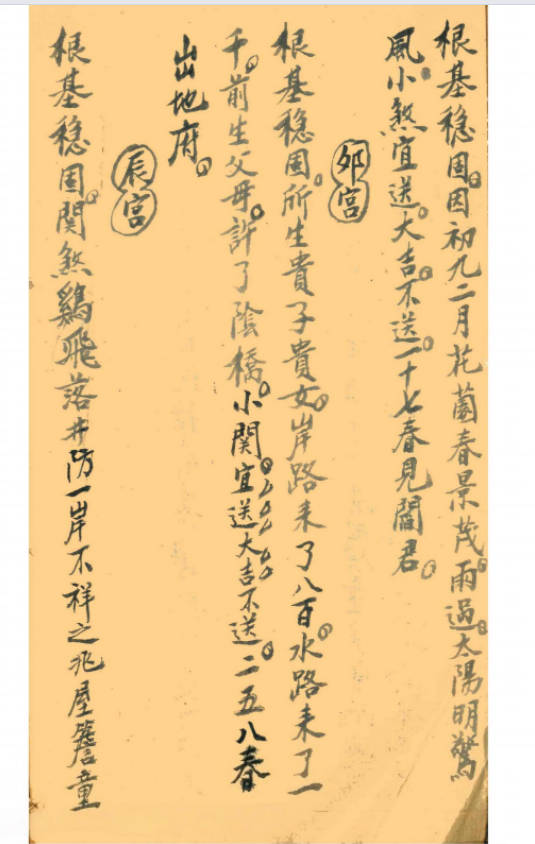 根基稳固。因初九二月花菌春景茂。雨過。太陽明驚
風。小煞宜送。大吉。不送。一十七春見閻君。
卯宮
根基稳固。所生貴子貴女。岸路未了八百。水路未了一
千。前生父母。許了陰橋。小関。宜送大吉不送。二五八春
出地府。
辰宮
根基稳固。関煞鷄飛落井防一岸不祥之兆屋簷童